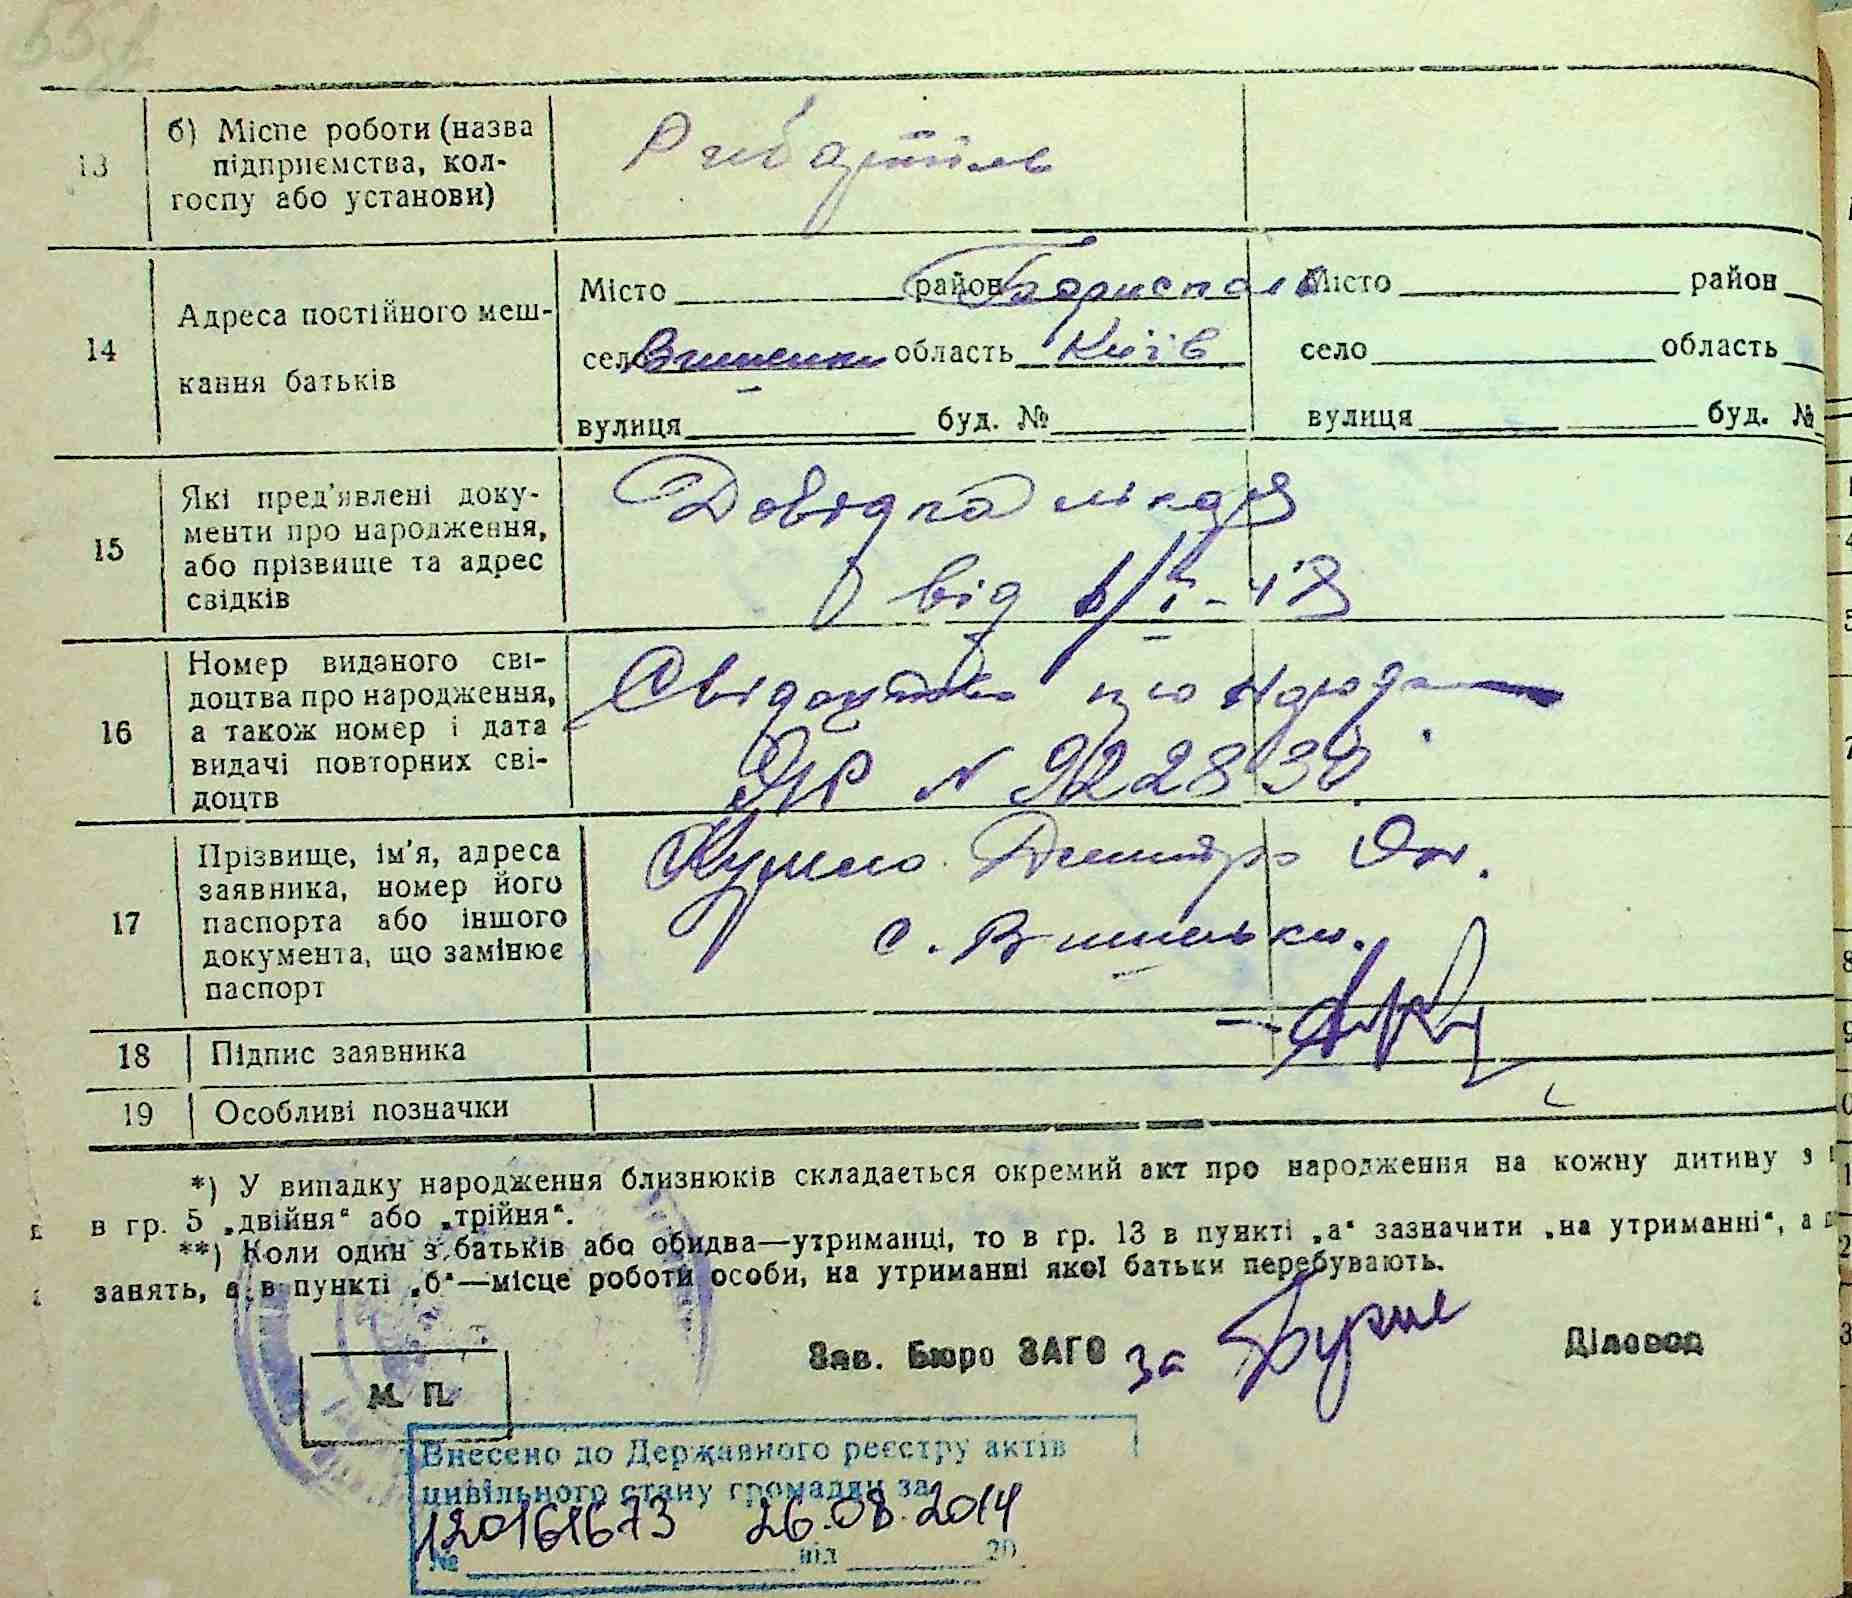 13
б) Місце роботи (назва
підприємства, кол-
госпу або установи)
Рибартіль
14
Адреса постійного меш-
кання батьків
Місто район Бориспол Місто район
село Вишеньки область Київ село область
вулиця буд. № вулиця буд. №
15
Які пред'явлені доку-
менти про народження,
або прізвище та адрес
свідків
Довідка лікаря
від
16
Номер виданого сві-
доцтва про народження,
а також номер і дата
видачі повторних сві-
доцтв
Свідоцтво про народж
№ 922830
17
Прізвище, ім'я, адреса
заявника, номер його
паспорта або іншого
документа, що замінює
паспорт
Дмитро
с. Вишеньки.
18 Підпис заявника
19 Особливі позначки
*) У випадку народження близнюків складається окремий акт про народження на кожну дитину з
в гр. 5 „двійня“ або „трійня“.
**) Коли один з батьків або обидва—утриманці, то в гр. 13 в пункті „а“ зазначити „на утриманні“, а
занять, а в пункті „б“—місце роботи особи, на утриманні якої батьки перебувають.
Зав. Бюро ЗАГС за Діловод
М. П.
Внесено до Державного реєстру актів
цивільного стану громадян за
120161673 26.08.2014
№ від 20